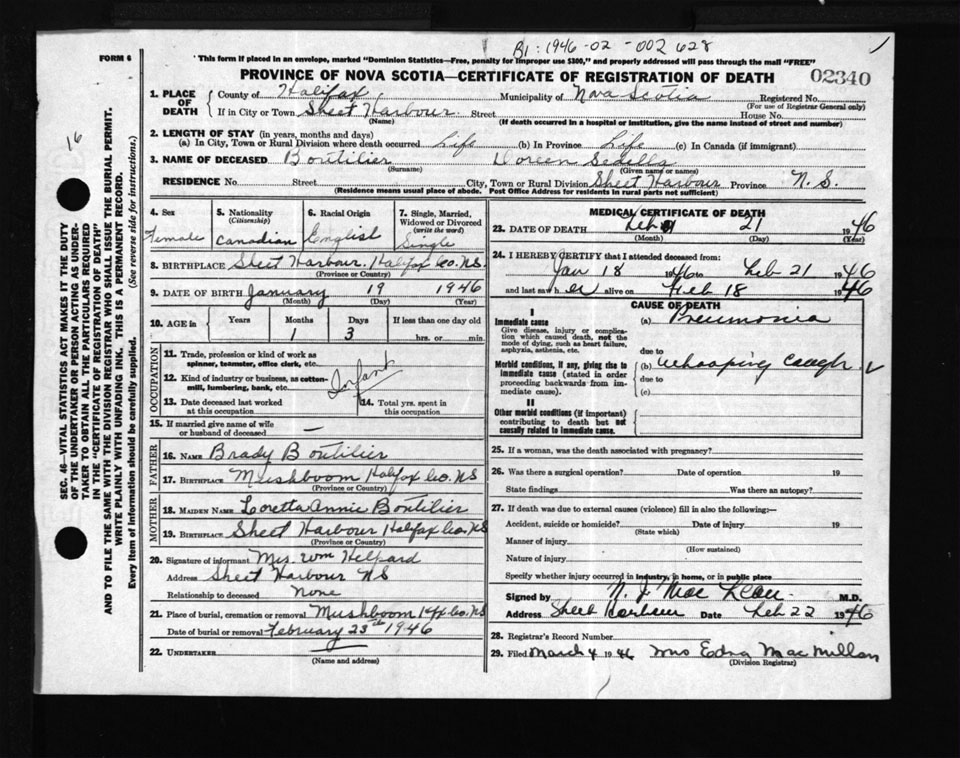 B1: 1946-02-002628
FORM 6
This form if placed in an envelope, marked "Dominion Statistics—Free, penalty for improper use $300," and properly addressed will pass through the mail "FREE"
PROVINCE OF NOVA SCOTIA—CERTIFICATE OF REGISTRATION OF DEATH
02340
16
SEC. 46—VITAL STATISTICS ACT MAKES IT THE DUTY
OF THE UNDERTAKER OR PERSON ACTING AS UNDER-
TAKER TO OBTAIN ALL THE PARTICULARS REQUIRED
IN THE "CERTIFICATE OF REGISTRATION OF DEATH"
AND TO FILE THE SAME WITH THE DIVISION REGISTRAR WHO SHALL ISSUE THE BURIAL PERMIT.
WRITE PLAINLY WITH UNFADING INK. THIS IS A PERMANENT RECORD.
Every item of Information should be carefully supplied. (See reverse side for instructions.)
1. PLACE OF DEATH
County of Halifax Municipality of Nova Scotia Registered No.
(For use of Registrar General only)
If in City or Town Sheet Harbour Street House No.
(Name) (If death occurred in a hospital or institution, give the name instead of street and number)
2. LENGTH OF STAY (in years, months and days)
(a) In City, Town or Rural Division where death occurred Life (b) In Province Life (c) In Canada (if immigrant)
3. NAME OF DECEASED Boutilier Doreen
(Surname) (Given name or names)
RESIDENCE No Street City, Town or Rural Division Sheet Harbour Province N. S.
(Residence means usual place of abode. Post Office Address for Residents in rural parts not sufficient)
4. Sex
Female
5. Nationality
(Citizenship)
Canadian
6. Racial Origin
English
7. Single, Married,
Widowed or Divorced
(write the word)
Single
8. BIRTHPLACE Sheet Harbour Halifax Co. NS.
(Province or Country)
9. DATE OF BIRTH January 19 1946
(Month) (Day) (Year)
10. AGE in
Years Months Days If less than one day old
1 3 hrs. or min.
OCCUPATION
11. Trade, profession or kind of work as
spinner, teamster, office clerk, etc.
12. Kind of industry or business, as cotton-
mill, lumbering, bank, etc.
Infant
13. Date deceased last worked
at this occupation
14. Total yrs. spent in
this occupation
15. If married give name of wife
or husband of deceased —
FATHER
16. NAME Brady Boutilier
17. BIRTHPLACE Mushboom Halifax Co. NS
(Province or Country)
MOTHER
18. MAIDEN NAME Loretta Annie Boutilier
19. BIRTHPLACE Sheet Harbour Halifax Co. NS
(Province or Country)
20. Signature of informant Mrs. Wm
Address Sheet Harbour NS
Relationship to deceased None
21. Place of burial, cremation or removal Mushboom Hfx Co. NS
Date of burial or removal February 23th 1946
22. UNDERTAKER
(Name and address)
MEDICAL CERTIFICATE OF DEATH
23. DATE OF DEATH Feb 21 1946
(Month) (Day) (Year)
24. I HEREBY CERTIFY that I attended deceased from:
Jan 18 1946 to Feb 21 1946
and last saw her alive on Feb 18 1946
CAUSE OF DEATH
I
Immediate cause
Give disease, injury or complica-
tion which caused death, not the
mode of dying, such as heart failure,
asphyxia, asthenia, etc.
(a) Pneumonia
due to
Morbid conditions, if any, giving rise to
immediate cause (stated in order
proceeding backwards from im-
mediate cause).
(b) Whooping Cough
due to
(c)
II
Other morbid conditions (if important)
contributing to death but not
causally related to immediate cause.
25. If a woman, was the death associated with pregnancy?
26. Was there a surgical operation? Date of operation 19
State findings Was there an autopsy?
27. If death was due to external causes (violence) fill in also the following:—
Accident, suicide or homicide? Date of injury 19
(State which)
Manner of injury
(How sustained)
Nature of injury
Specify whether injury occurred in industry, in home, or in public place
Signed by N. J. Mac Lean M.D.
Address Sheet Harbour Date Feb 22 1946
28. Registrar's Record Number
29. Filed March 4 1946 Mrs Edna MacMillan
(Division Registrar)